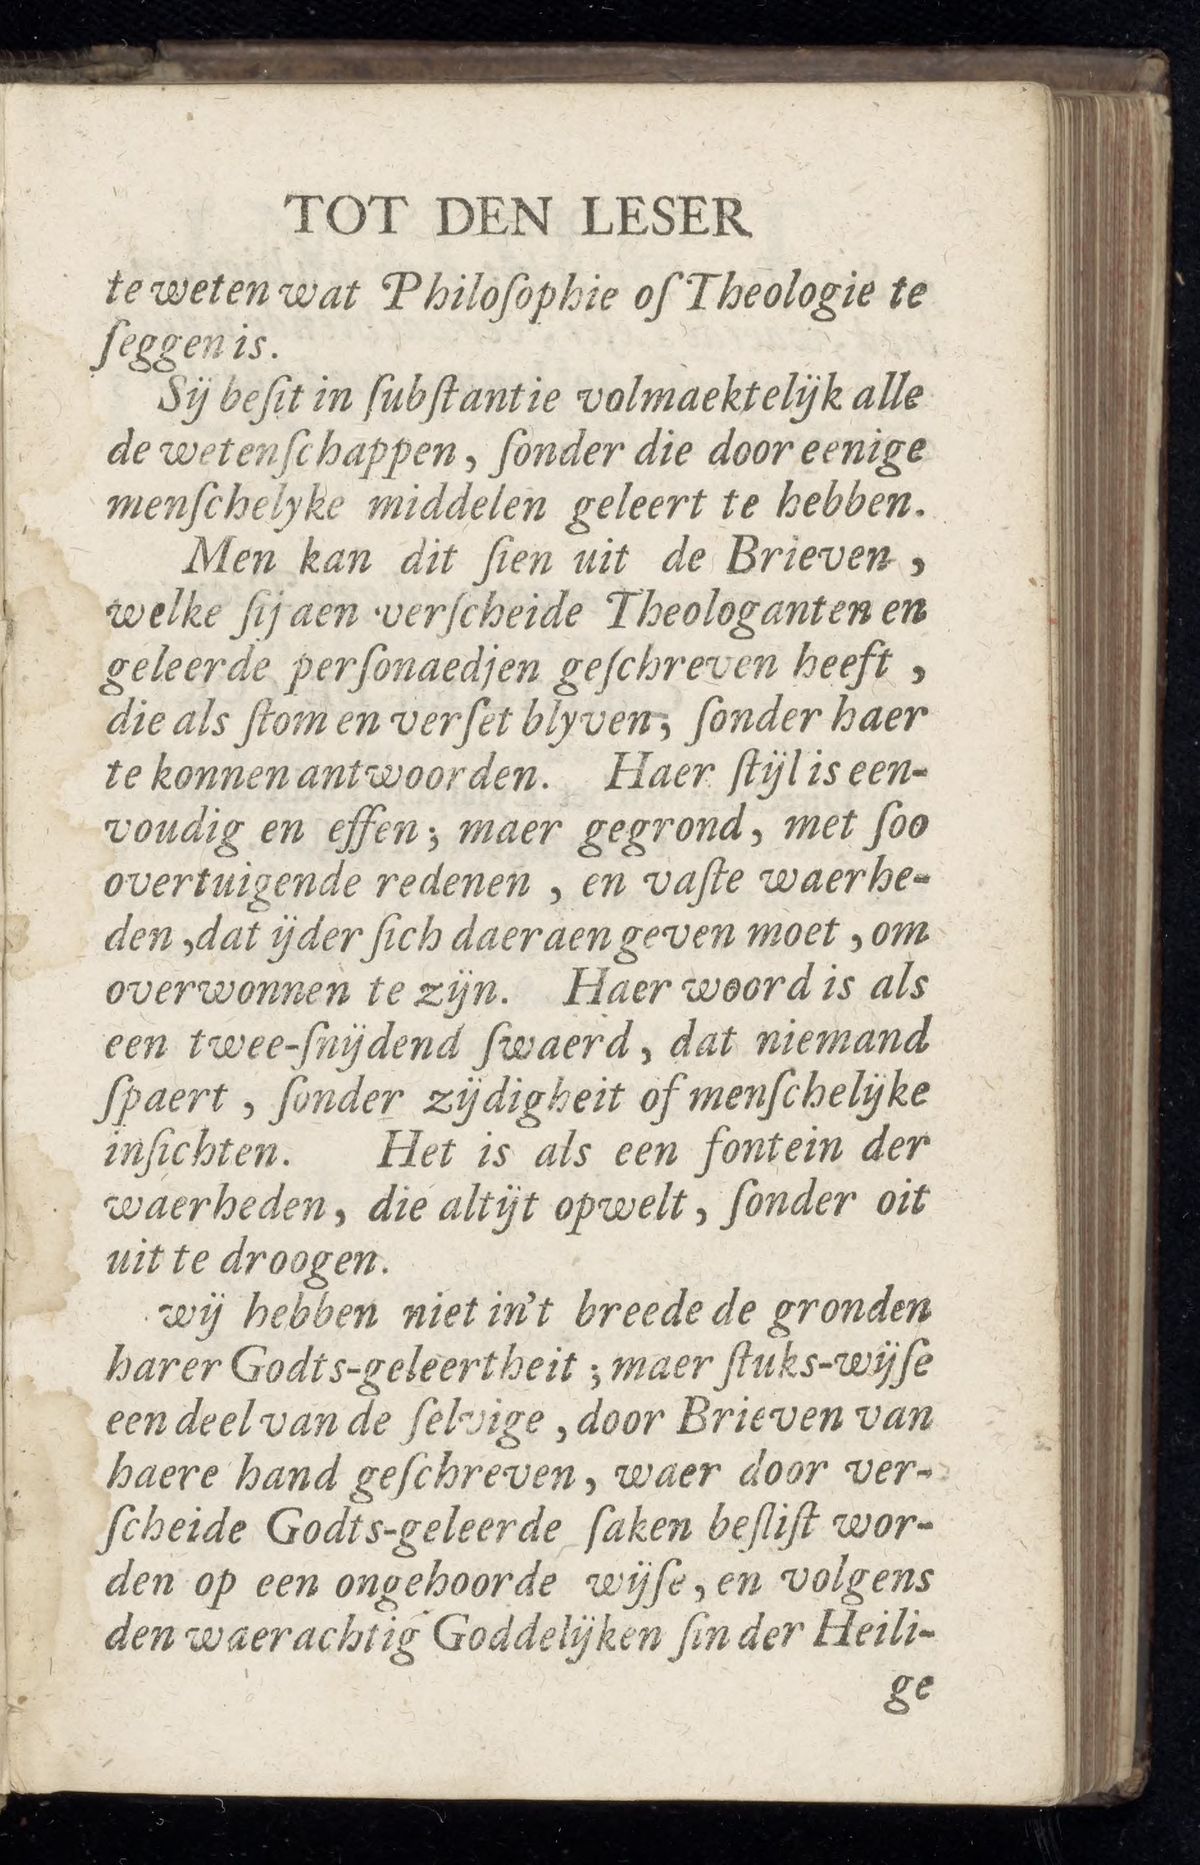 TOT DEN LESER
te weten wat Philoſophie oſ Theologie te
ſeggen is.
Sij beſit in ſubſtantie volmaektelijk alle
de wetenſchappen, ſonder die door eenige
menſchelyke middelen geleert te hebben.
Men kan dit ſien uit de Brieven,
welke ſij aen verſcheide Theologanten en
geleerde perſonaedjen geſchreven heeft,
die als ſtom en verſet blyven, ſonder haer
te konnen antwoorden. Haer ſtijl is een-
voudig en effen; maer gegrond, met ſoo
overtuigende redenen, en vaſte waerhe-
den, dat ijder ſich daer aen geven moet, om
overwonnen te zijn. Haer woord is als
een twee-ſnijdend ſwaerd, dat niemand
ſpaert, ſonder zijdigheit of menſchelijke
inſichten. Het is als een fontein der
waerheden, die altijt opwelt, ſonder oit
uit te droogen.
wij hebben niet in't breede de gronden
harer Godts-geleertheit; maer ſtuks-wijſe
een deel van de ſelvige, door Brieven van
haere hand geſchreven, waer door ver-
ſcheide Godts-geleerde ſaken beſliſt wor-
den op een ongehoorde wijſe, en volgens
den waerachtig Goddelijken ſin der Heili-
ge